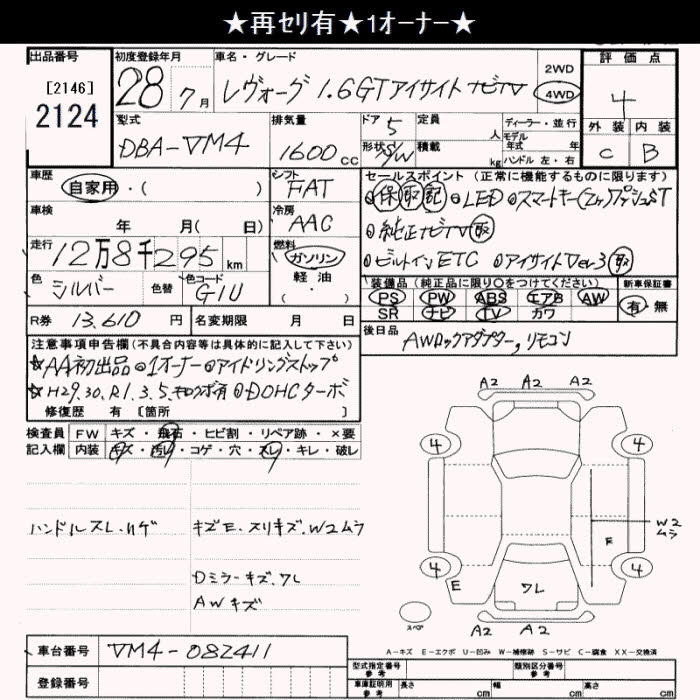 ★再セリ有★1オーナー★
出品番号 初度登録年月 車名・グレード 評価点
[2146] 2124
28年 7月 レヴォーグ 1.6GTアイサイト ナビTV 2WD 4WD 4
型式 排気量 ドア 5 定員 人 ディーラー・並行 外装 内装
DBA-VM4 1600cc 形状 S/W 積載 kg モデル年式 年式 ハンドル 左・右 C B
車歴 シフト セールスポイント (正常に機能するものに限ります)
自家用・( ) FAT 保 取 記 LED スマートキー(2ヶ)プッシュST
車検 年 月( 日) 冷房 AAC 純正ナビTV 取
走行 12万8千295km 燃料 ガソリン 軽油・ ビルトインETC アイサイトVer3 取
色 シルバー 色替 色コード G1U 装備品 (純正品に限り○をつけてください) 新車保証書
PS PW ABS エアB AW 有・無
SR ナビ TV カワ
R券 13,610円 名変期限 月 日 後日品 AWロックアダプター,リモコン
注意事項申告欄(不具合内容等は具体的に記入して下さい)
☆AA初出品 1オーナー アイドリングストップ
☆H29.30.R1.3.5.キロクボ有 DOHCターボ
修復歴 有 [箇所 ]
検査員 FW キズ・飛石・ヒビ割・リペア跡・×要
記入欄 内装 キズ・汚れ・コゲ・穴・スレ・キレ・破レ
ハンドルスレ.ハゲ キズE.スリキズ.W2ムラ
Dミラーキズ.ワレ
AWキズ
A2 A2 A2
4 4
W2ムラ
E
4 E ワレ 4
スペア A2 A2
A-キズ E-エクボ U-凹み W-補修跡 S-サビ C-腐食 XX-交換済
車台番号 VM4-082411 型式指定番号 参考 類別区分番号 参考
登録番号 車庫証明用 参考 長さ cm 幅 cm 高さ cm